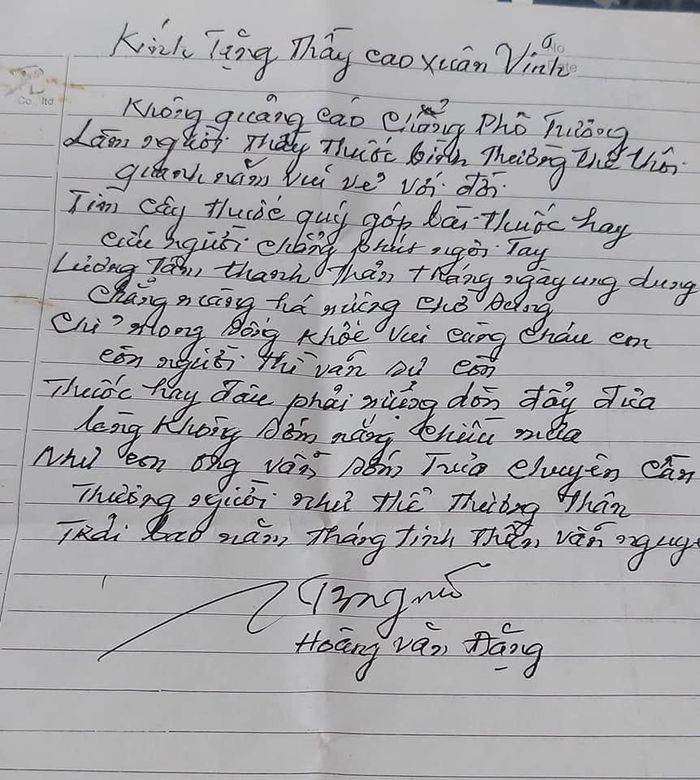 Kính Tặng Thầy Cao Xuân Vinh
Co., ltd
Không quảng cáo chẳng phô trương
Làm người thầy thuốc bình thường thế thôi
quanh năm vui vẻ với đời
Tìm cây thuốc quý góp bài thuốc hay
cứu người chẳng phút ngơi tay
Lương tâm thanh thản tháng ngày ung dung
chẳng màng há
Chỉ mong sống khỏe vui cùng cháu con
còn người thì vẫn sự còn
Thuốc hay đâu phải đồn đẩy đưa
lòng không sớm nắng chiều mưa
Như con ong vẫn sớm trưa chuyên cần
Thương người như thể thương thân
Trải bao năm tháng tinh thần vẫn nguyê
Hoàng Văn Đặng